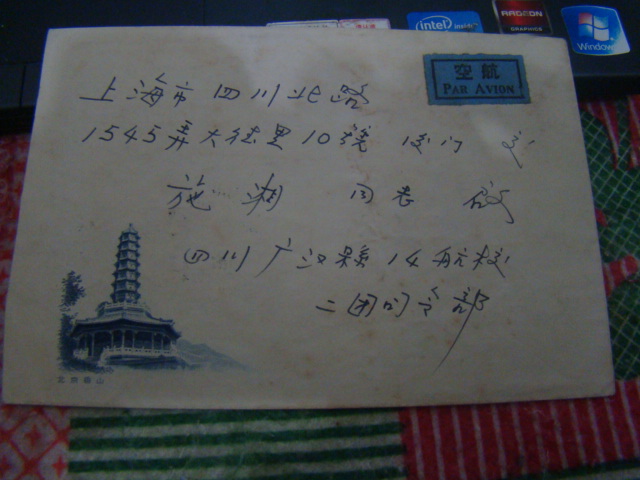 intel
inside
RADEON
GRAPHICS
Windows
空航
PAR AVION
上海市 四川北路
1545弄大德里10號 后门 交
施湘 同志 啟
四川广汉縣14航校
二团司令部
北京香山